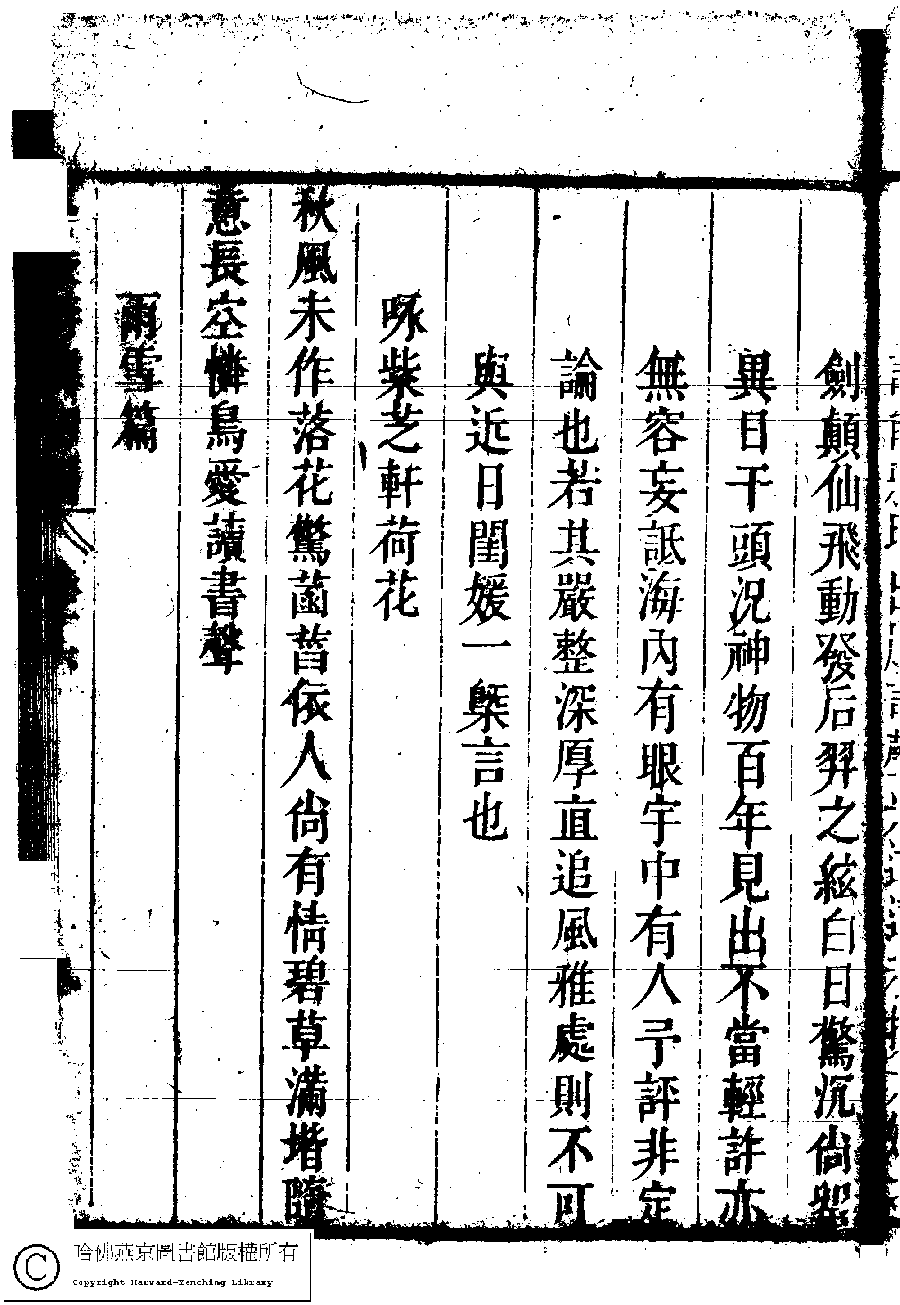 劍顛仙飛動發后羿之絃白日驚沉尙
異日干頭況神物百年見出不當輕許亦
無容妄詆海內有眼宇中有人予評非定
論也若其嚴整深厚直追風雅處則不可
與近日閨媛一槩言也
啄紫芝軒荷花
秋風未作落花驚菡萏依人尙有情碧草滿堦隨
意長空憐鳥愛讀書聲
雨雪篇
哈佛燕京圖書館版權所有
Copyright Harvard-Yenching Library